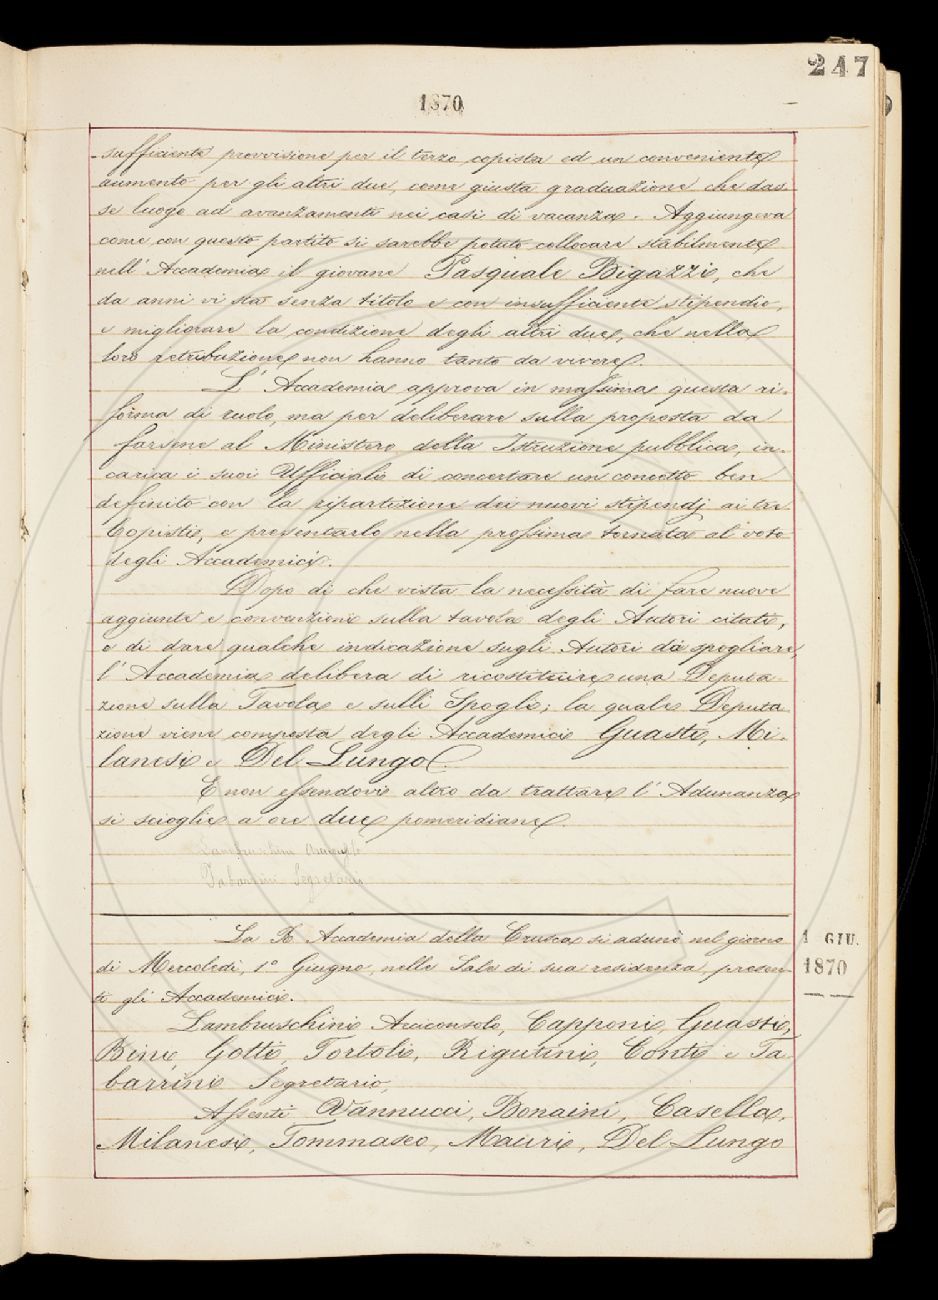 247
1870
sufficiente provvisione per il terzo copista ed un conveniente
aumento per gli altri due, come giusta graduazione che das-
se luogo ad avanzamenti nei casi di vacanza. Aggiungeva
come con questo partito si sarebbe potuto collocare stabilmente
nell'Accademia il giovane Pasquale Bigazzi, che
da anni vi sta senza titolo e con insufficiente stipendio,
e migliorare la condizione degli altri due, che nella
loro retribuzione non hanno tanto da vivere.
L'Accademia approva in massima questa ri-
forma di ruolo, ma per deliberare sulla proposta da
farsene al Ministero della Istruzione pubblica, in-
carica i suoi Ufficiali di concertare un concetto ben
definito con la ripartizione dei nuovi stipendj ai tre
Copisti, e presentarlo nella prossima tornata al voto
degli Accademici.
Dopo di che vista la necessità di fare nuove
aggiunte e correzioni sulla tavola degli Autori citati,
e di dare qualche indicazione sugli Autori da spogliare,
l'Accademia delibera di ricostituire una Deputa-
zione sulla Tavola e sulli Spogli; la quale Deputa
zione viene composta degli Accademici Guasti, Mi-
lanesi e Del Lungo.
E non essendovi altro da trattare l'Adunanza
si scioglie a ore due pomeridiane.
Lambruschini Arciconsolo
Tabarrini Segretario
La R. Accademia della Crusca si adunò nel giorno
di Mercoledì, 1º Giugno, nelle Sale di sua residenza, presen-
ti gli Accademici.
1 GIU.
1870
Lambruschini Arciconsolo, Capponi, Guasti,
Bini, Gotti, Tortoli, Rigutini, Conti e Ta
barrini Segretario,
Assenti Vannucci, Bonaini, Casella,
Milanesi, Tommaseo, Mauri, Del Lungo